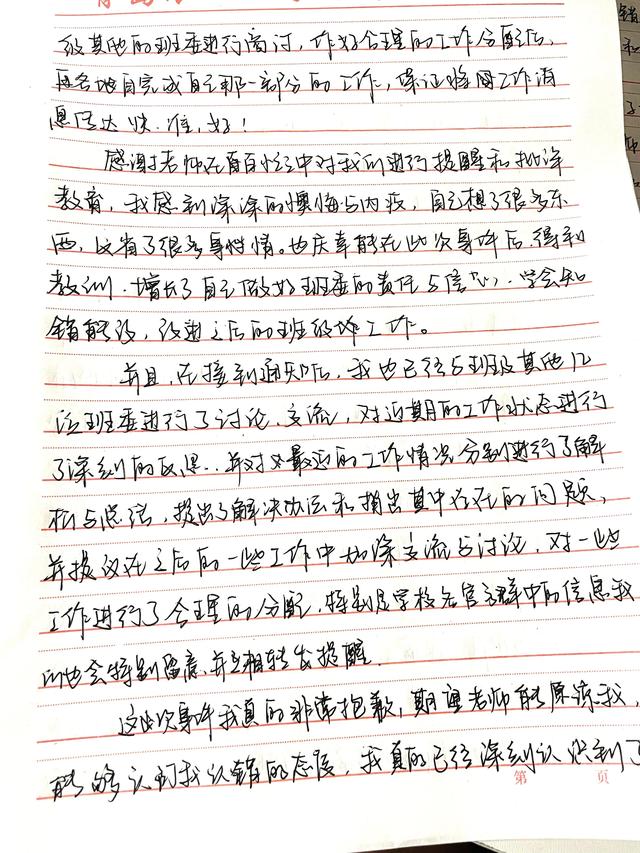 级其他的班委进行商讨，作好合理的工作分配后，
各地自完成自己那一部分的工作，保证将工作消
息传达快、准、好！
感谢老师在百忙之中对我们进行提醒和批评
教育，我感到深深的懊悔与内疚，自己想了很多东
西，反省了很多事情。也庆幸能在此次事件后，得到
教训，增长了自己做好班委的责任与信心，学会知
错能改，改进之后的班级工作。
并且，在接到通知后，我也已经与班级其他几
位班委进行了讨论、交流，对近期的工作状态进行
了深刻的反思，并对最近的工作情况分别进行了解
析与总结，提出了解决办法和指出其中存在的问题，
并提议在之后的一些工作中加深交流与讨论，对一些
工作进行了合理的分配，特别是学校各官方群中的信息我
们也会特别留意、并互相转发提醒。
这次事件我真的非常抱歉，期望老师能原谅我，
能够认可我认错的态度，我真的已经深刻认识到了
第 页
错
和